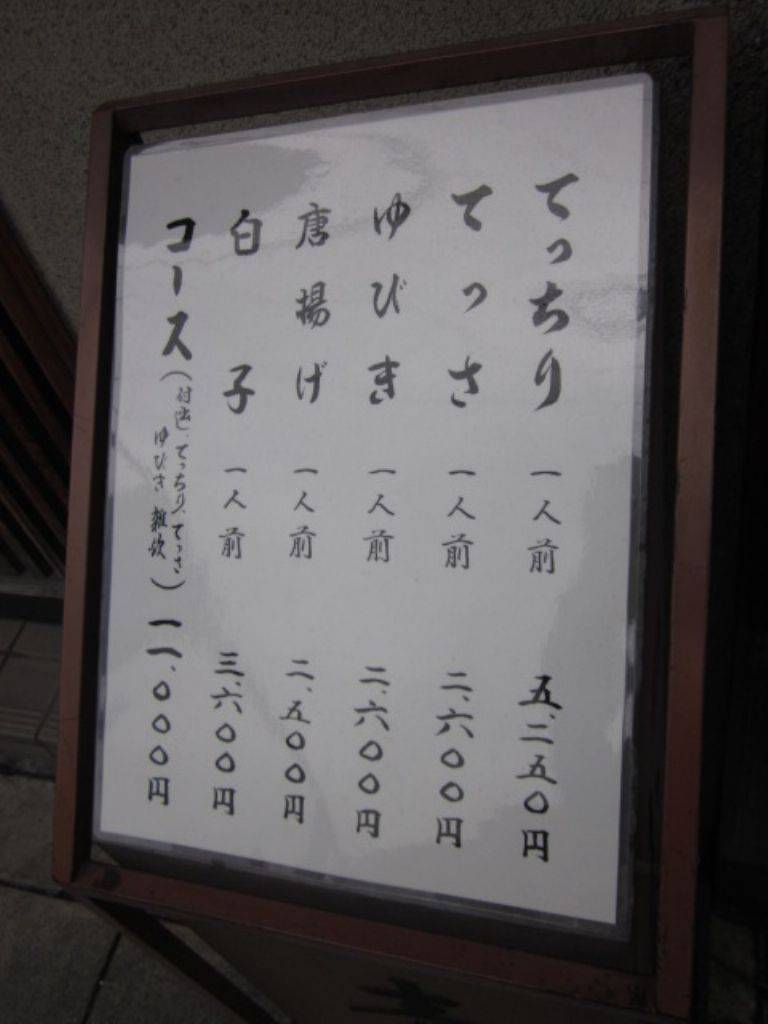 てっちり 一人前 五、二五〇円
てっさ 一人前 二、六〇〇円
ゆびき 一人前 二、六〇〇円
唐揚げ 一人前 二、五〇〇円
白子 一人前 三、六〇〇円
コース(付出し、てっちり、てっさ
ゆびき 雑炊) 一一、〇〇〇円